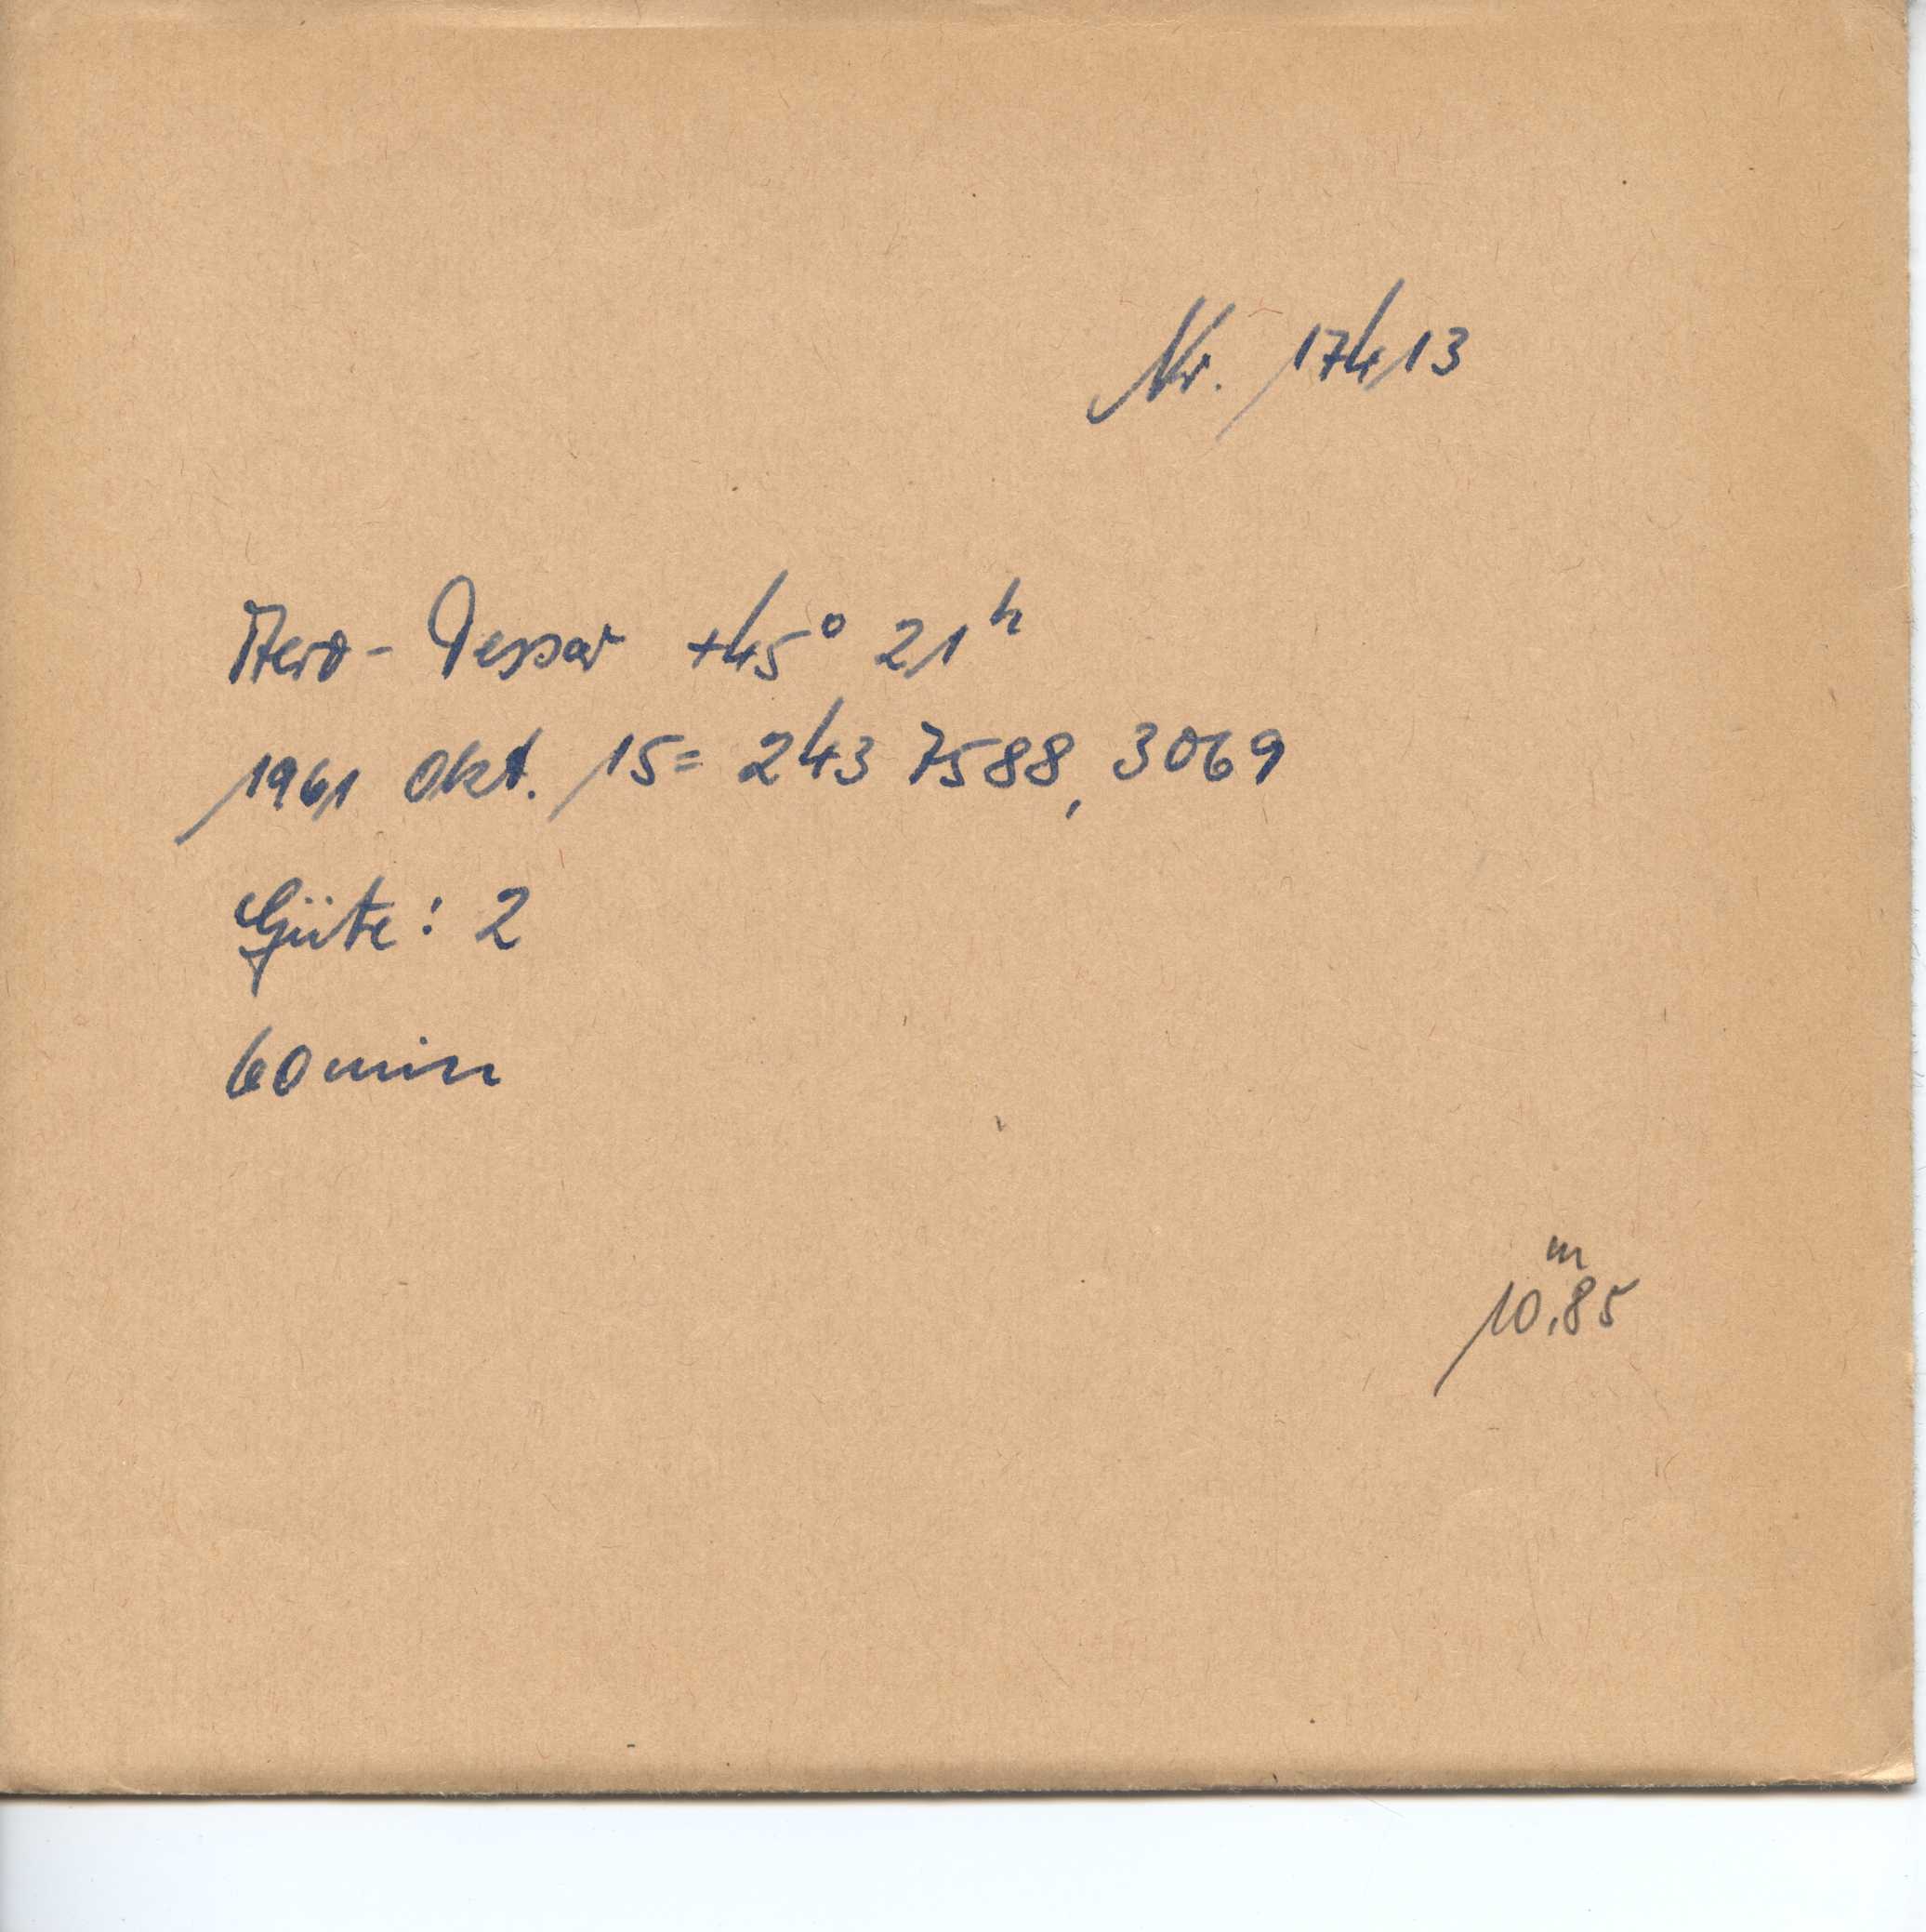 Nr. 17413
Aero-Tessar +45° 21ʰ
1961 Okt. 15 = 243 7588, 3069
Güte: 2
60 min
10ᵐ.85